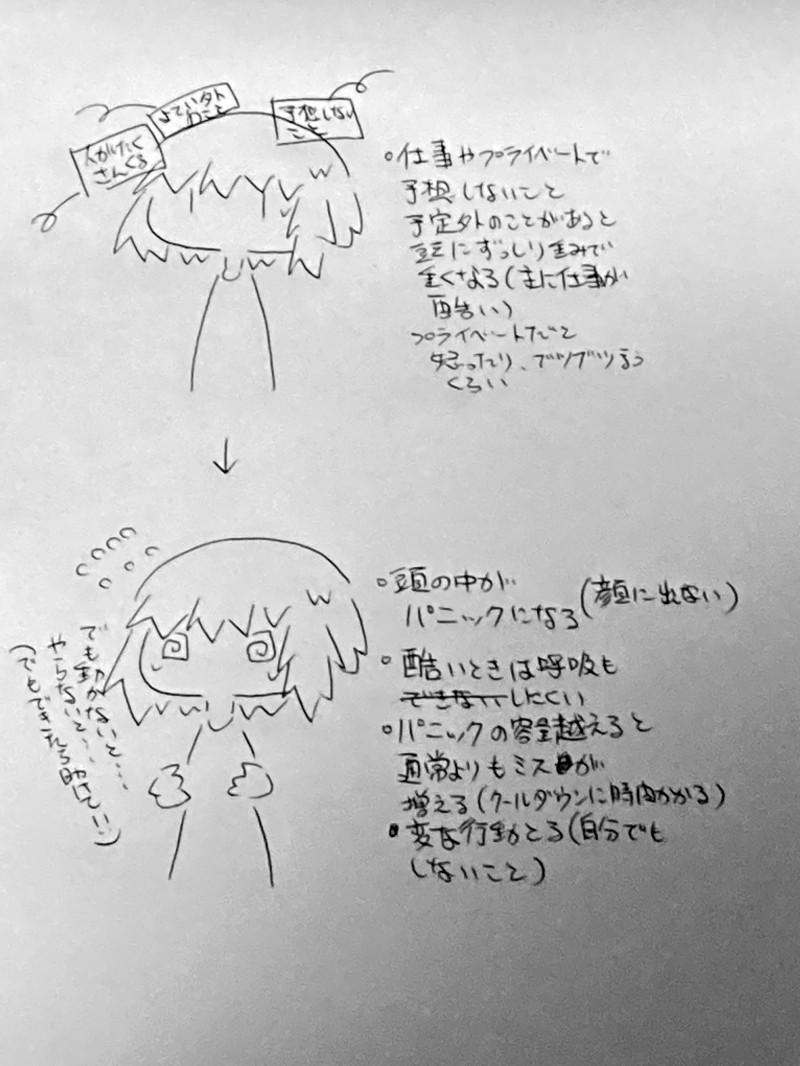 人がたく
さんくる
よてい外
のこと
予想しない
こと
○仕事やプライベートで
予想しないこと
予定外のことがあると
頭にずっしり重みで
重くなる(主に仕事が
酷い)
プライベートだと
怒ったり、ブツブツ言う
くらい
↓
○頭の中が
パニックになる(顔に出ない)
○酷いときは呼吸も
できないしにくい
○パニックの容量越えると
通常よりもミスが
増える(クールダウンに時間かかる)
●変な行動とる(自分でも
しないこと)
でも動かないと…
やらないと…
(でもできたら助けてい…)